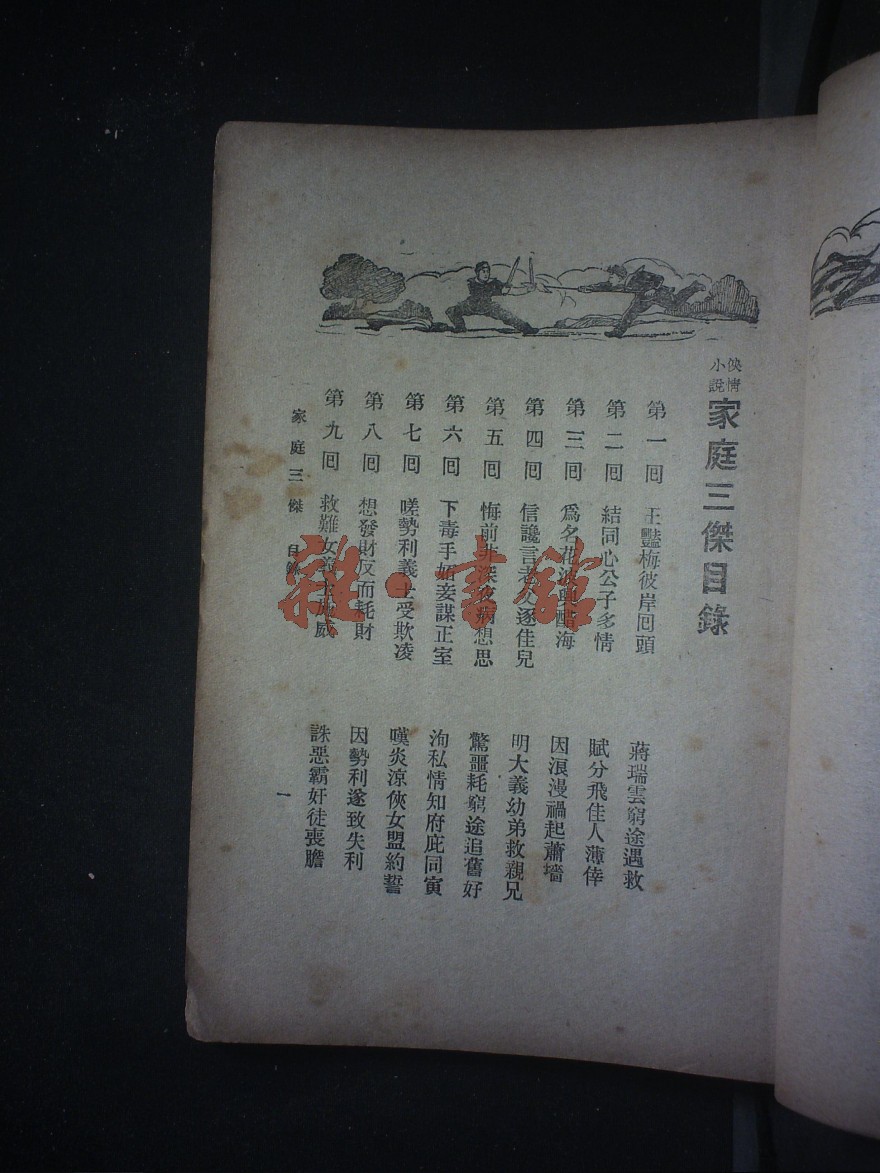 俠情
小說
家庭三傑目錄
第一回 王豔梅彼岸回頭 蔣瑞雲窮途遇救
第二回 結同心公子多情 賦分飛佳人薄倖
第三回 爲名花波興醋海 因浪漫禍起蕭墻
第四回 信讒言老人逐佳兒 明大義幼弟救親兄
第五回 悔前非深夜病想思 驚噩耗窮途追舊好
第六回 下毒手妬妾謀正室 洵私情知府庇同寅
第七回 嗟勢利義士受欺凌 嘆炎涼俠女盟約誓
第八回 想發財反而耗財 因勢利遂致失利
第九回 救難女義士施威 誅惡霸奸徒喪膽
家庭三傑 目錄 一
雜·書館